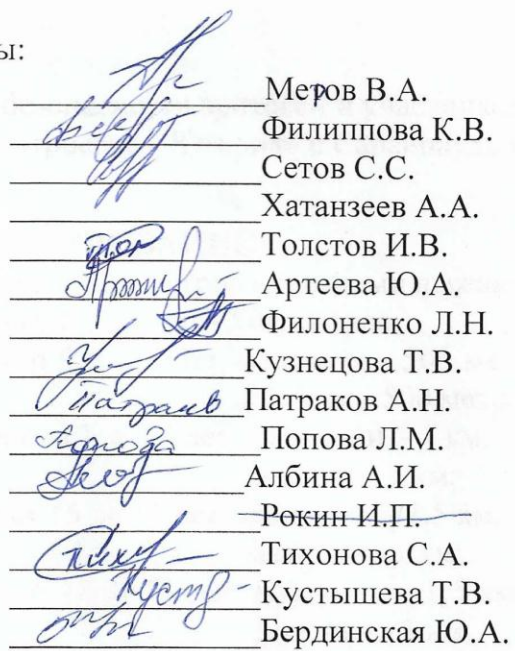 ы:
Метов В.А.
Филиппова К.В.
Сетов С.С.
Хатанзеев А.А.
Толстов И.В.
Артеева Ю.А.
Филоненко Л.Н.
Кузнецова Т.В.
Патраков А.Н.
Попова Л.М.
Албина А.И.
Рокин И.П.
Тихонова С.А.
Кустышева Т.В.
Бердинская Ю.А.